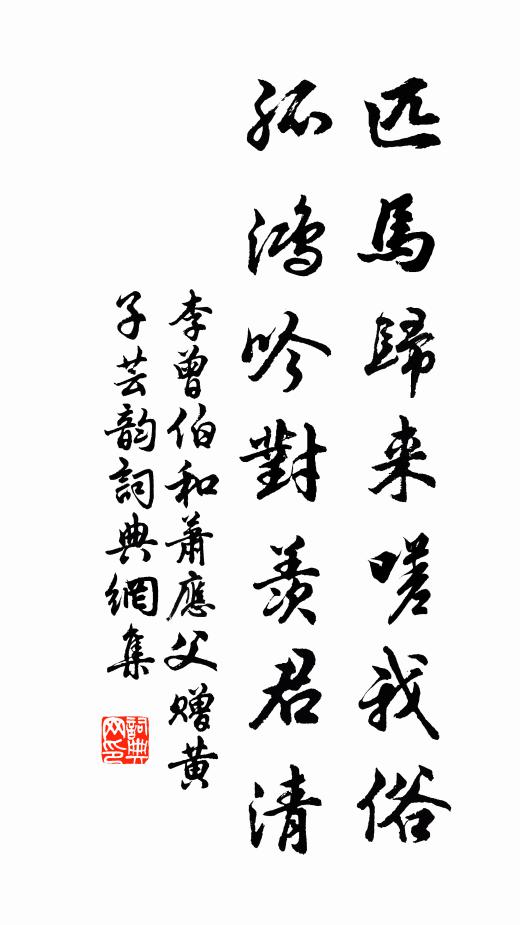 匹馬歸来嗟我俗
孤鴻吟對羨君清
李曾伯和萧應父赠黄
子芸韵詞典網集
詞典网印